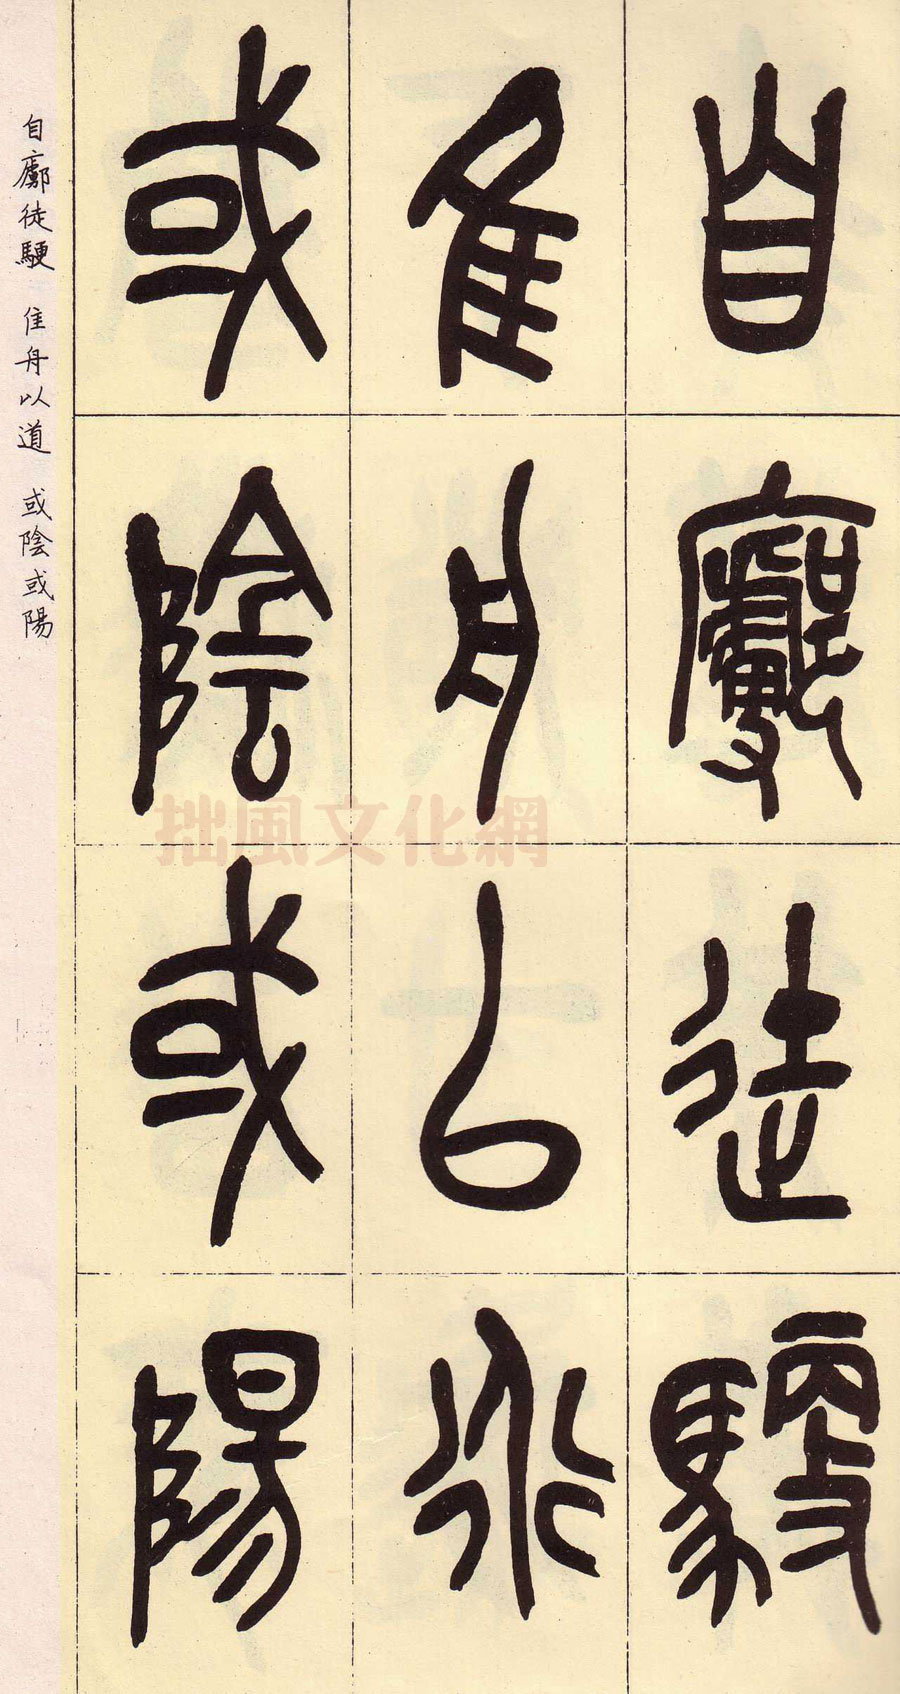 自廓徒駛
隹舟以道
或陰或陽
自廓徒駛 隹舟以道 或陰或陽
拙風文化網